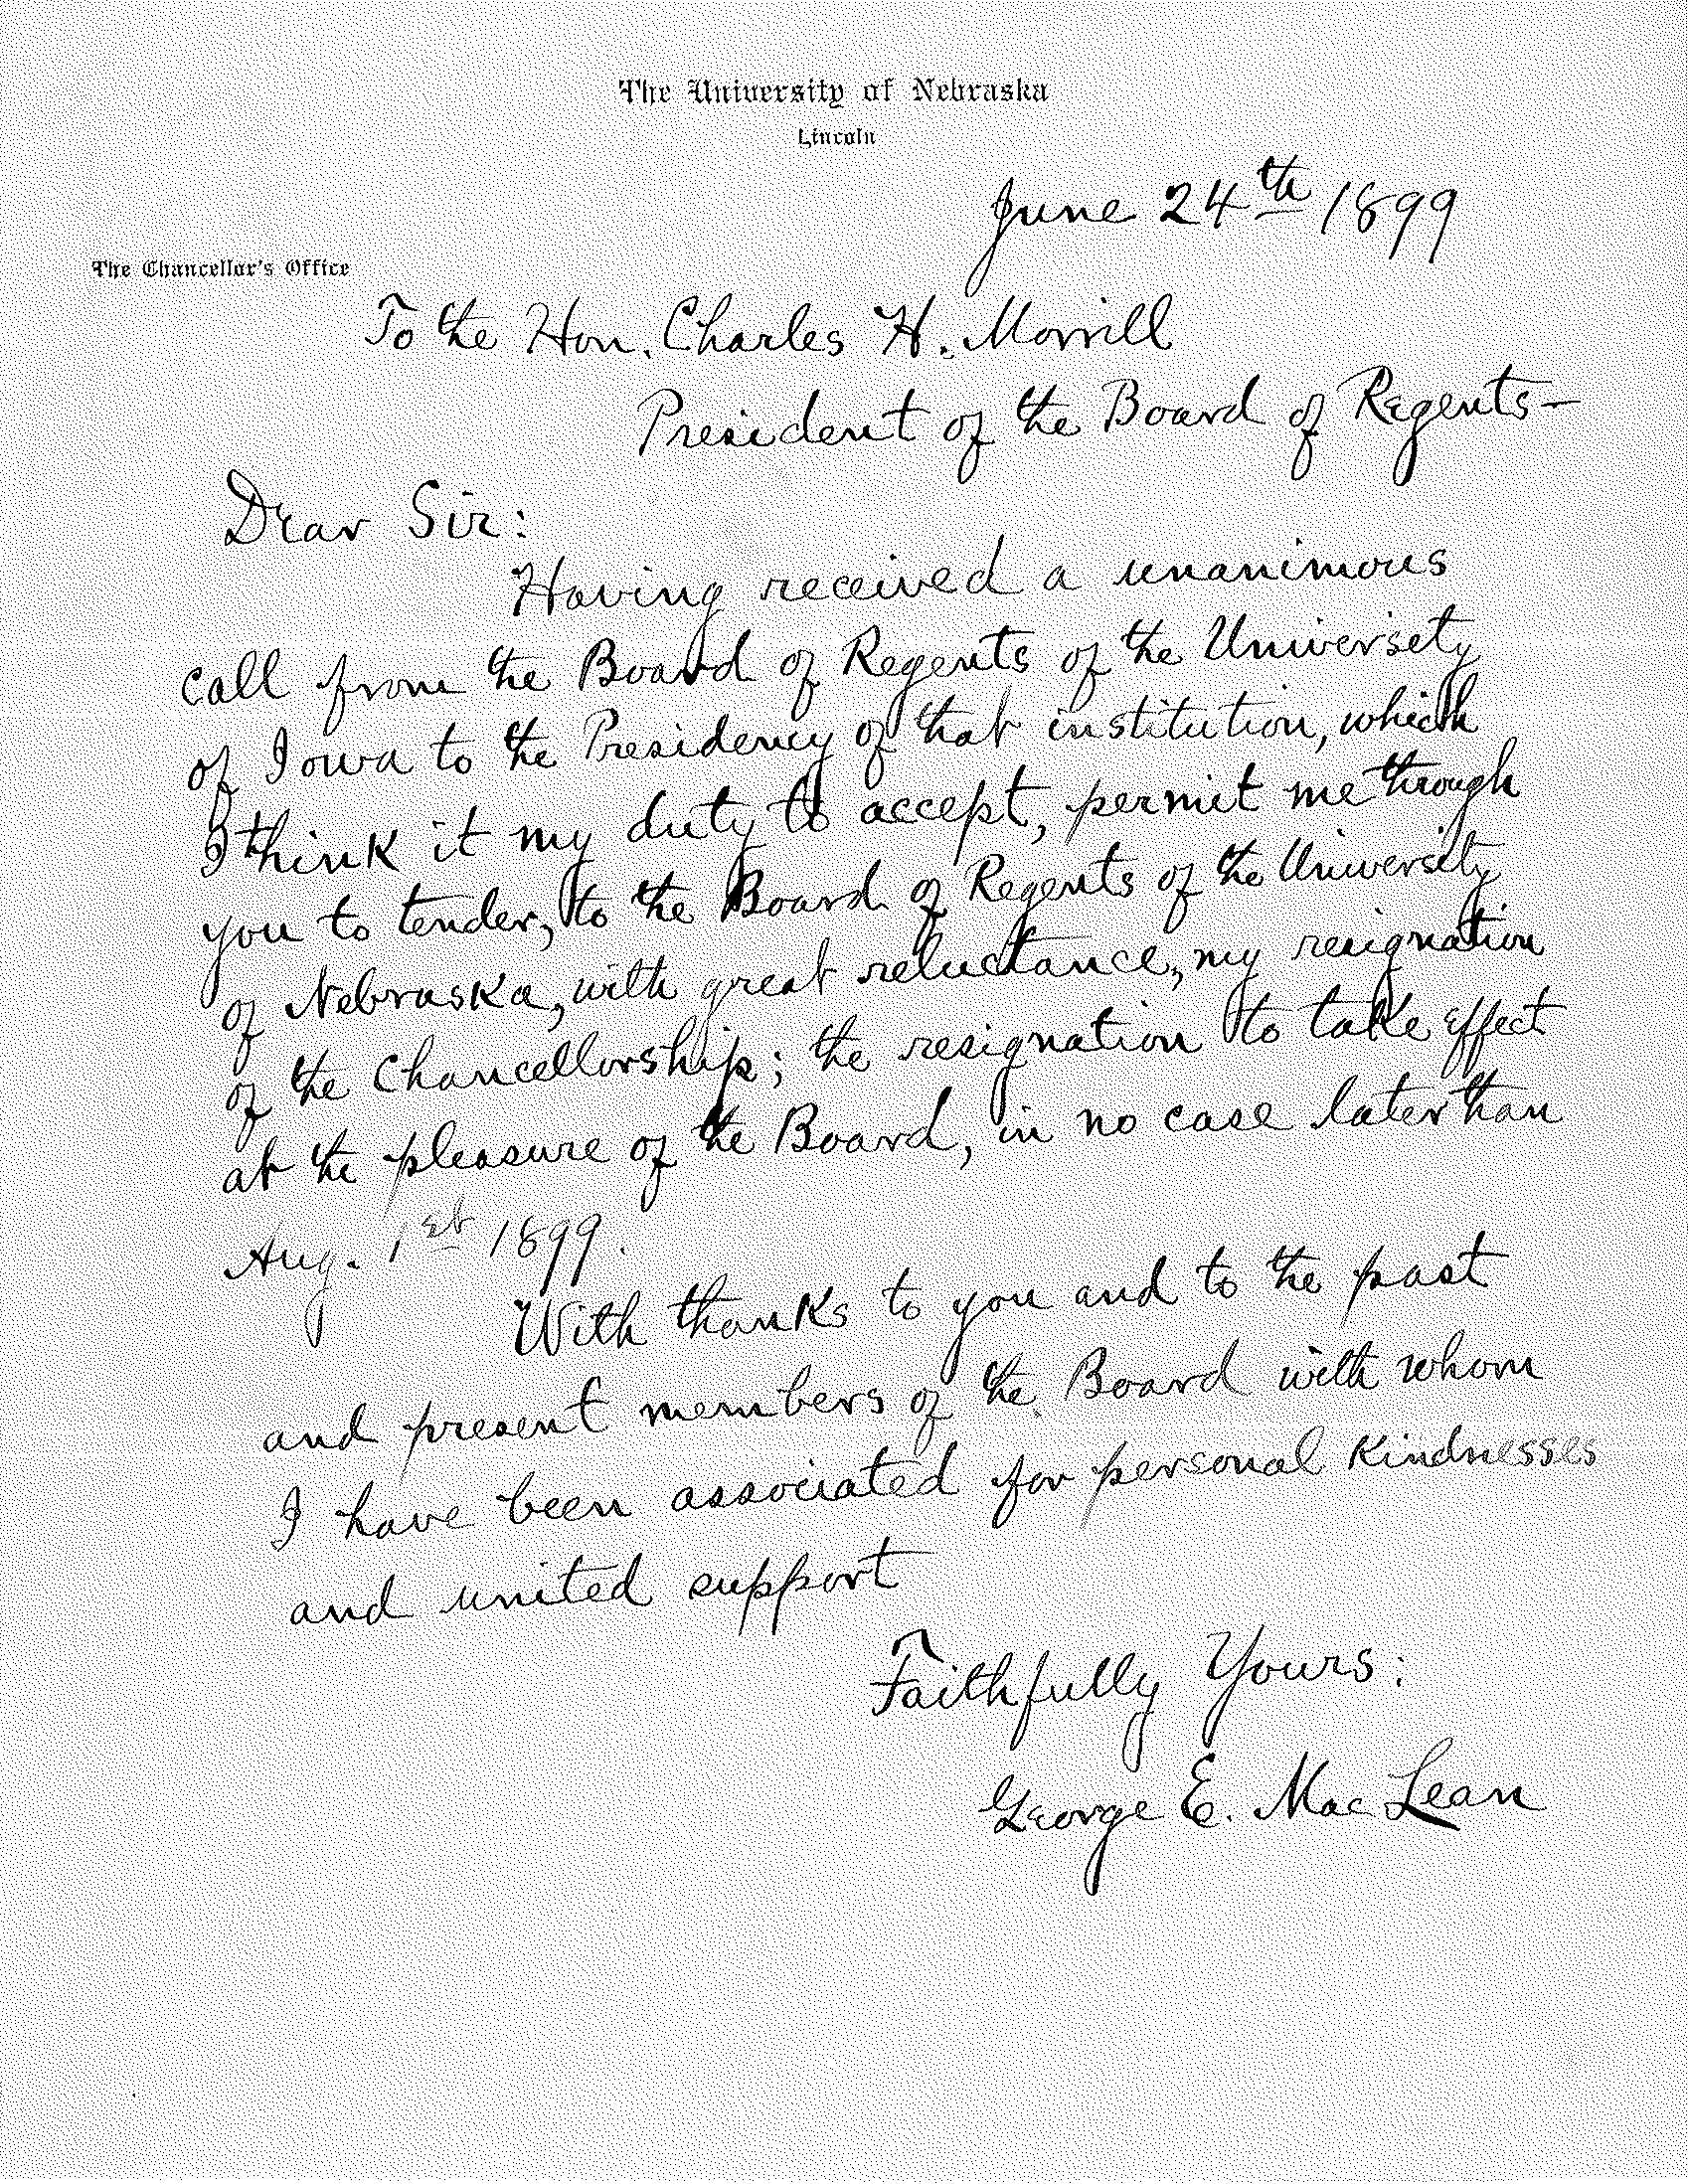 The University of Nebraska
Lincoln
June 24th 1899
The Chancellor's Office
To the Hon. Charles H. Morrill
President of the Board of Regents—
Dear Sir:
Having received a unanimous
call from the Board of Regents of the University
of Iowa to the Presidency of that institution, which
I think it my duty to accept, permit me through
you to tender, to the Board of Regents of the University
of Nebraska, with great reluctance, my resignation
of the Chancellorship; the resignation to take effect
at the pleasure of the Board, in no case later than
Aug. 1st 1899.
With thanks to you and to the past
and present members of the Board with whom
I have been associated for personal kindnesses
and united support
Faithfully Yours:
George E. MacLean